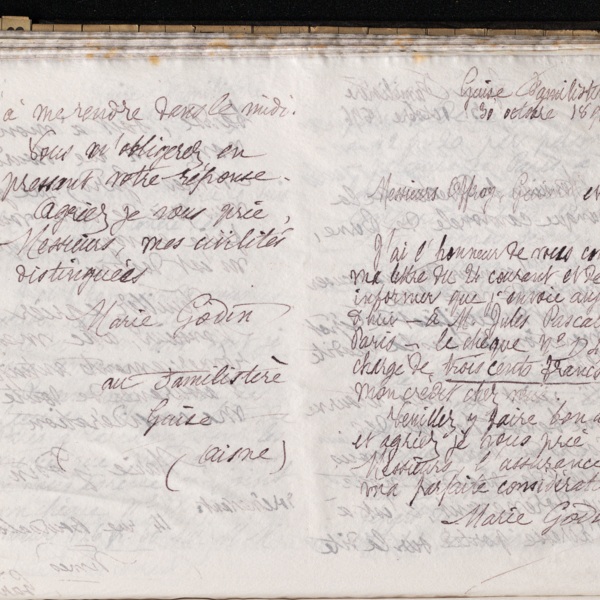 à me rendre dans le midi.
Vous m'obligerez en
pressant votre réponse.
Agréez je vous prie,
Messieurs, mes civilités
distinguées
Marie Godin
au Familistère
Guise
(aisne)
Guise Familist
30 octobre 18
Messieurs
J'ai l'honneur de vous con
ma lettre du 24 courant et de
informer que j'envoie auj
d'hui — à M. Jules Pascal
Paris — le chèque n°
charge de trois cents francs
mon crédit chez vous.
Veuillez y faire bon a
et agréez je vous prie
Messieurs, l'assurance
ma parfaite considérat
Marie Godin